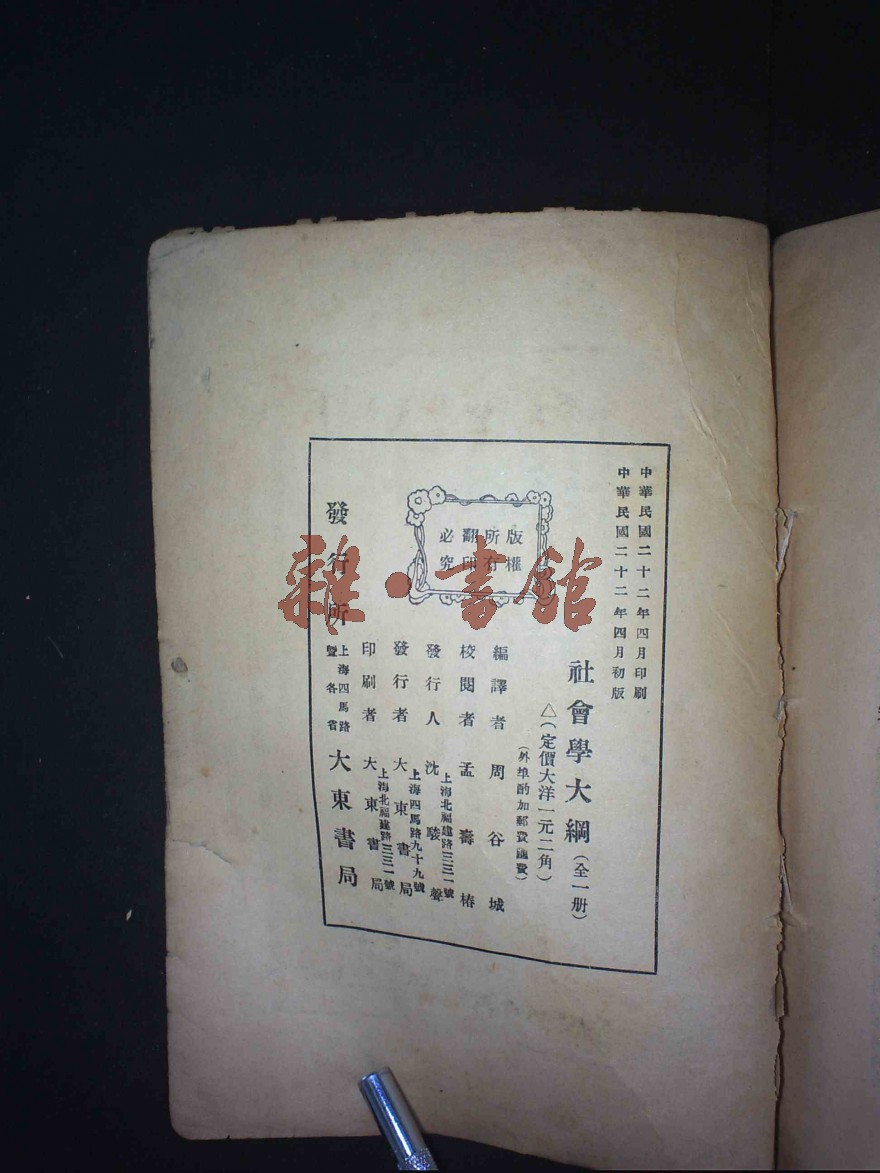 中華民國二十二年四月印刷
中華民國二十二年四月初版
社會學大綱（全一册）
△（定價大洋一元二角）
（外埠酌加郵費匯費）
版權
所有
翻印
必究
編譯者 周谷城
校閱者 孟壽椿
發行人 沈駿聲
上海北福建路三三一號
發行者 大東書局
上海四馬路九十九號
印刷者 大東書局
上海北福建路三三一號
發行所 上海四馬路暨各省 大東書局
雜·書館